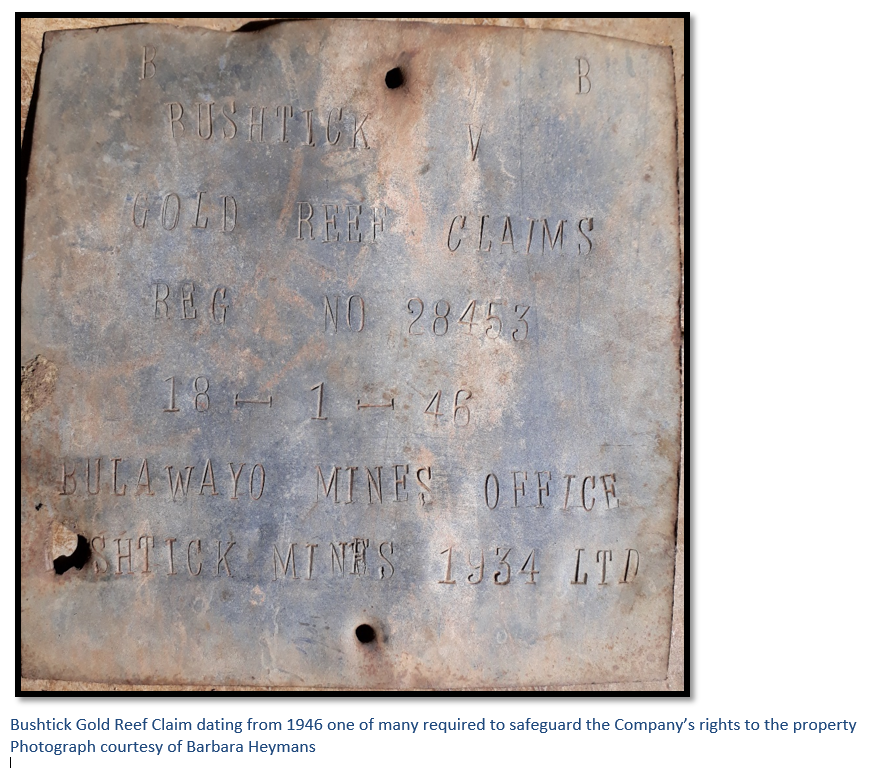 B B
BUSHTICK V
GOLD REEF CLAIMS
REG NO 28453
18 – 1 – 46
BULAWAYO MINES OFFICE
SHTICK MINES 1934 LTD
Bushtick Gold Reef Claim dating from 1946 one of many required to safeguard the Company’s rights to the property
Photograph courtesy of Barbara Heymans